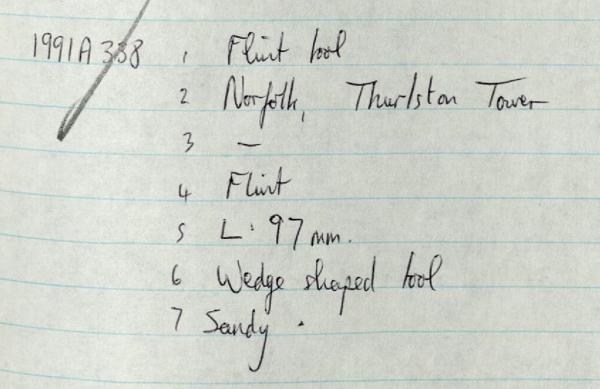 1991A338 1 Flint tool
2 Norfolk, Thurlston Tower
3 —
4 Flint
5 L: 97 mm.
6 Wedge shaped tool
7 Sandy.